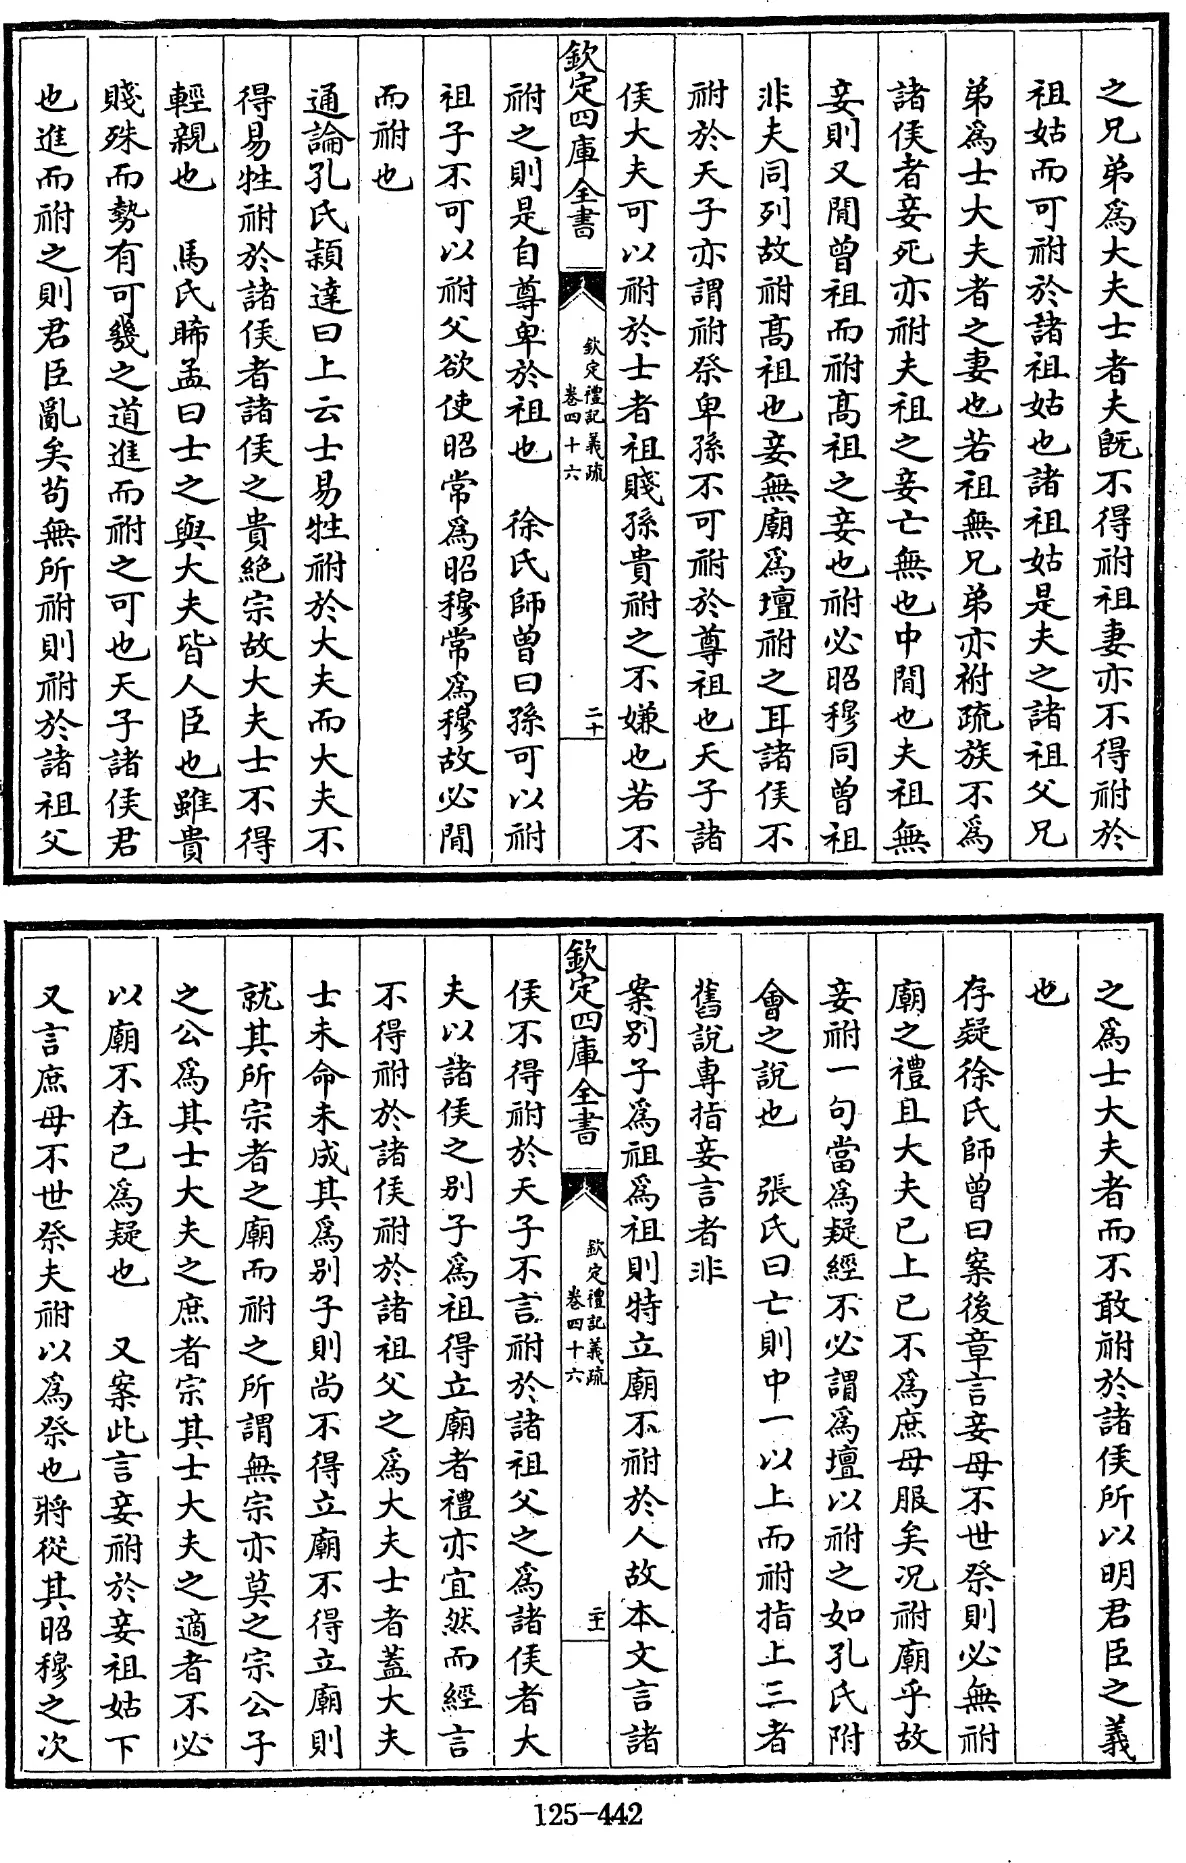 之兄弟爲大夫士者夫旣不得祔祖妻亦不得祔於
祖姑而可祔於諸祖姑也諸祖姑是夫之諸祖父兄
弟爲士大夫者之妻也若祖無兄弟亦祔疏族不爲
諸侯者妾死亦祔夫祖之妾亡無也中間也夫祖無
妾則又間曾祖而祔髙祖之妾也祔必昭穆同曾祖
非夫同列故祔髙祖也妾無廟爲壇祔之耳諸侯不
祔於天子亦謂祔祭卑孫不可祔於尊祖也天子諸
侯大夫可以祔於士者祖賤孫貴祔之不嫌也若不
欽定四庫全書
欽定禮記義疏
卷四十六
二十
祔之則是自尊卑於祖也 徐氏師曾曰孫可以祔
祖子不可以祔父欲使昭常爲昭穆常爲穆故必間
而祔也
通論孔氏穎達曰上云士易牲祔於大夫而大夫不
得易牲祔於諸侯者諸侯之貴絶宗故大夫士不得
輕親也 馬氏晞孟曰士之與大夫皆人臣也雖貴
賤殊而勢有可幾之道進而祔之可也天子諸侯君
也進而祔之則君臣亂矣苟無所祔則祔於諸祖父
之爲士大夫者而不敢祔於諸侯所以明君臣之義
也
存疑徐氏師曾曰案後章言妾母不世祭則必無祔
廟之禮且大夫已上已不爲庶母服矣况祔廟乎故
妾祔一句當爲疑經不必謂爲壇以祔之如孔氏附
會之說也 張氏曰亡則中一以上而祔指上三者
舊說專指妾言者非
案别子爲祖爲祖則特立廟不祔於人故本文言諸
欽定四庫全書
欽定禮記義疏
卷四十六
二十一
侯不得祔於天子不言祔於諸祖父之爲諸侯者大
夫以諸侯之别子爲祖得立廟者禮亦宜然而經言
不得祔於諸侯祔於諸祖父之爲大夫士者蓋大夫
士未命未成其爲别子則尚不得立廟不得立廟則
就其所宗者之廟而祔之所謂無宗亦莫之宗公子
之公爲其士大夫之庶者宗其士大夫之適者不必
以廟不在已爲疑也 又案此言妾祔於妾祖姑下
又言庶母不世祭夫祔以爲祭也將從其昭穆之次
125-442